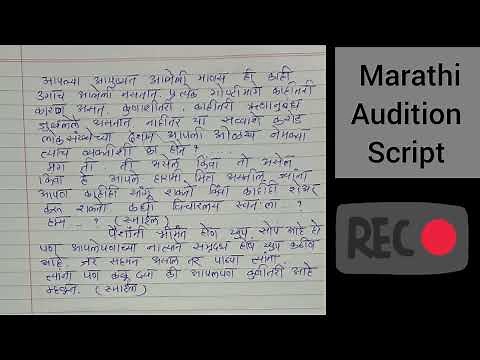 आपल्या आयुष्यात आलेली माणसं ही काही
उगाच आलेली नसतात. प्रत्येक गोष्टीमागे काहीतरी
कारण असतं, कुणाशीतरी, काहीतरी ऋणानुबंध
जुळलेले असतात नाहीतर या सव्वाशे करोड
लोकसंख्येच्या देशात आपली ओळख नेमक्या
त्याच व्यक्तीशी का होते? ....
मग ती ती असेल किंवा तो असेल
किंवा हे आपले हसमी मित्र असतील ज्यांना
आपण काहीही सांगू शकतो किंवा काहीही शेअर
करू शकतो. कधी विचारलय स्वतःला ..?
हम्म ..? (स्माईल)
पैशांनी श्रीमंत होणं खुप सोपं आहे हो
पण आपलेपणाच्या नात्यानं समृद्ध होणं खुप कठीण
आहे. जर सहमत असाल तर पाठवा त्यांना
त्यांना पण कळू द्या की आपलंपण कुणीतरी आहे
म्हणून. (स्माईल)
Marathi
Audition
Script
REC